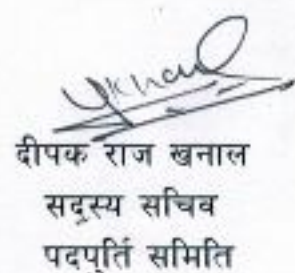 दीपक राज खनाल
सदस्य सचिव
पदपूर्ति समिति